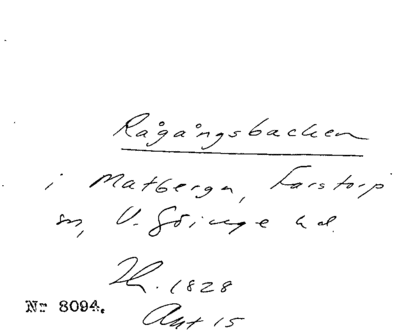 Rågångsbacken
i Matberga, Farstorp
sn, V. Göinge hd.
Th. 1828
Akt 15
Nr 8094.